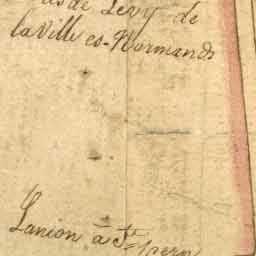 de Levy de
la Ville es-Normands
Lanion à St